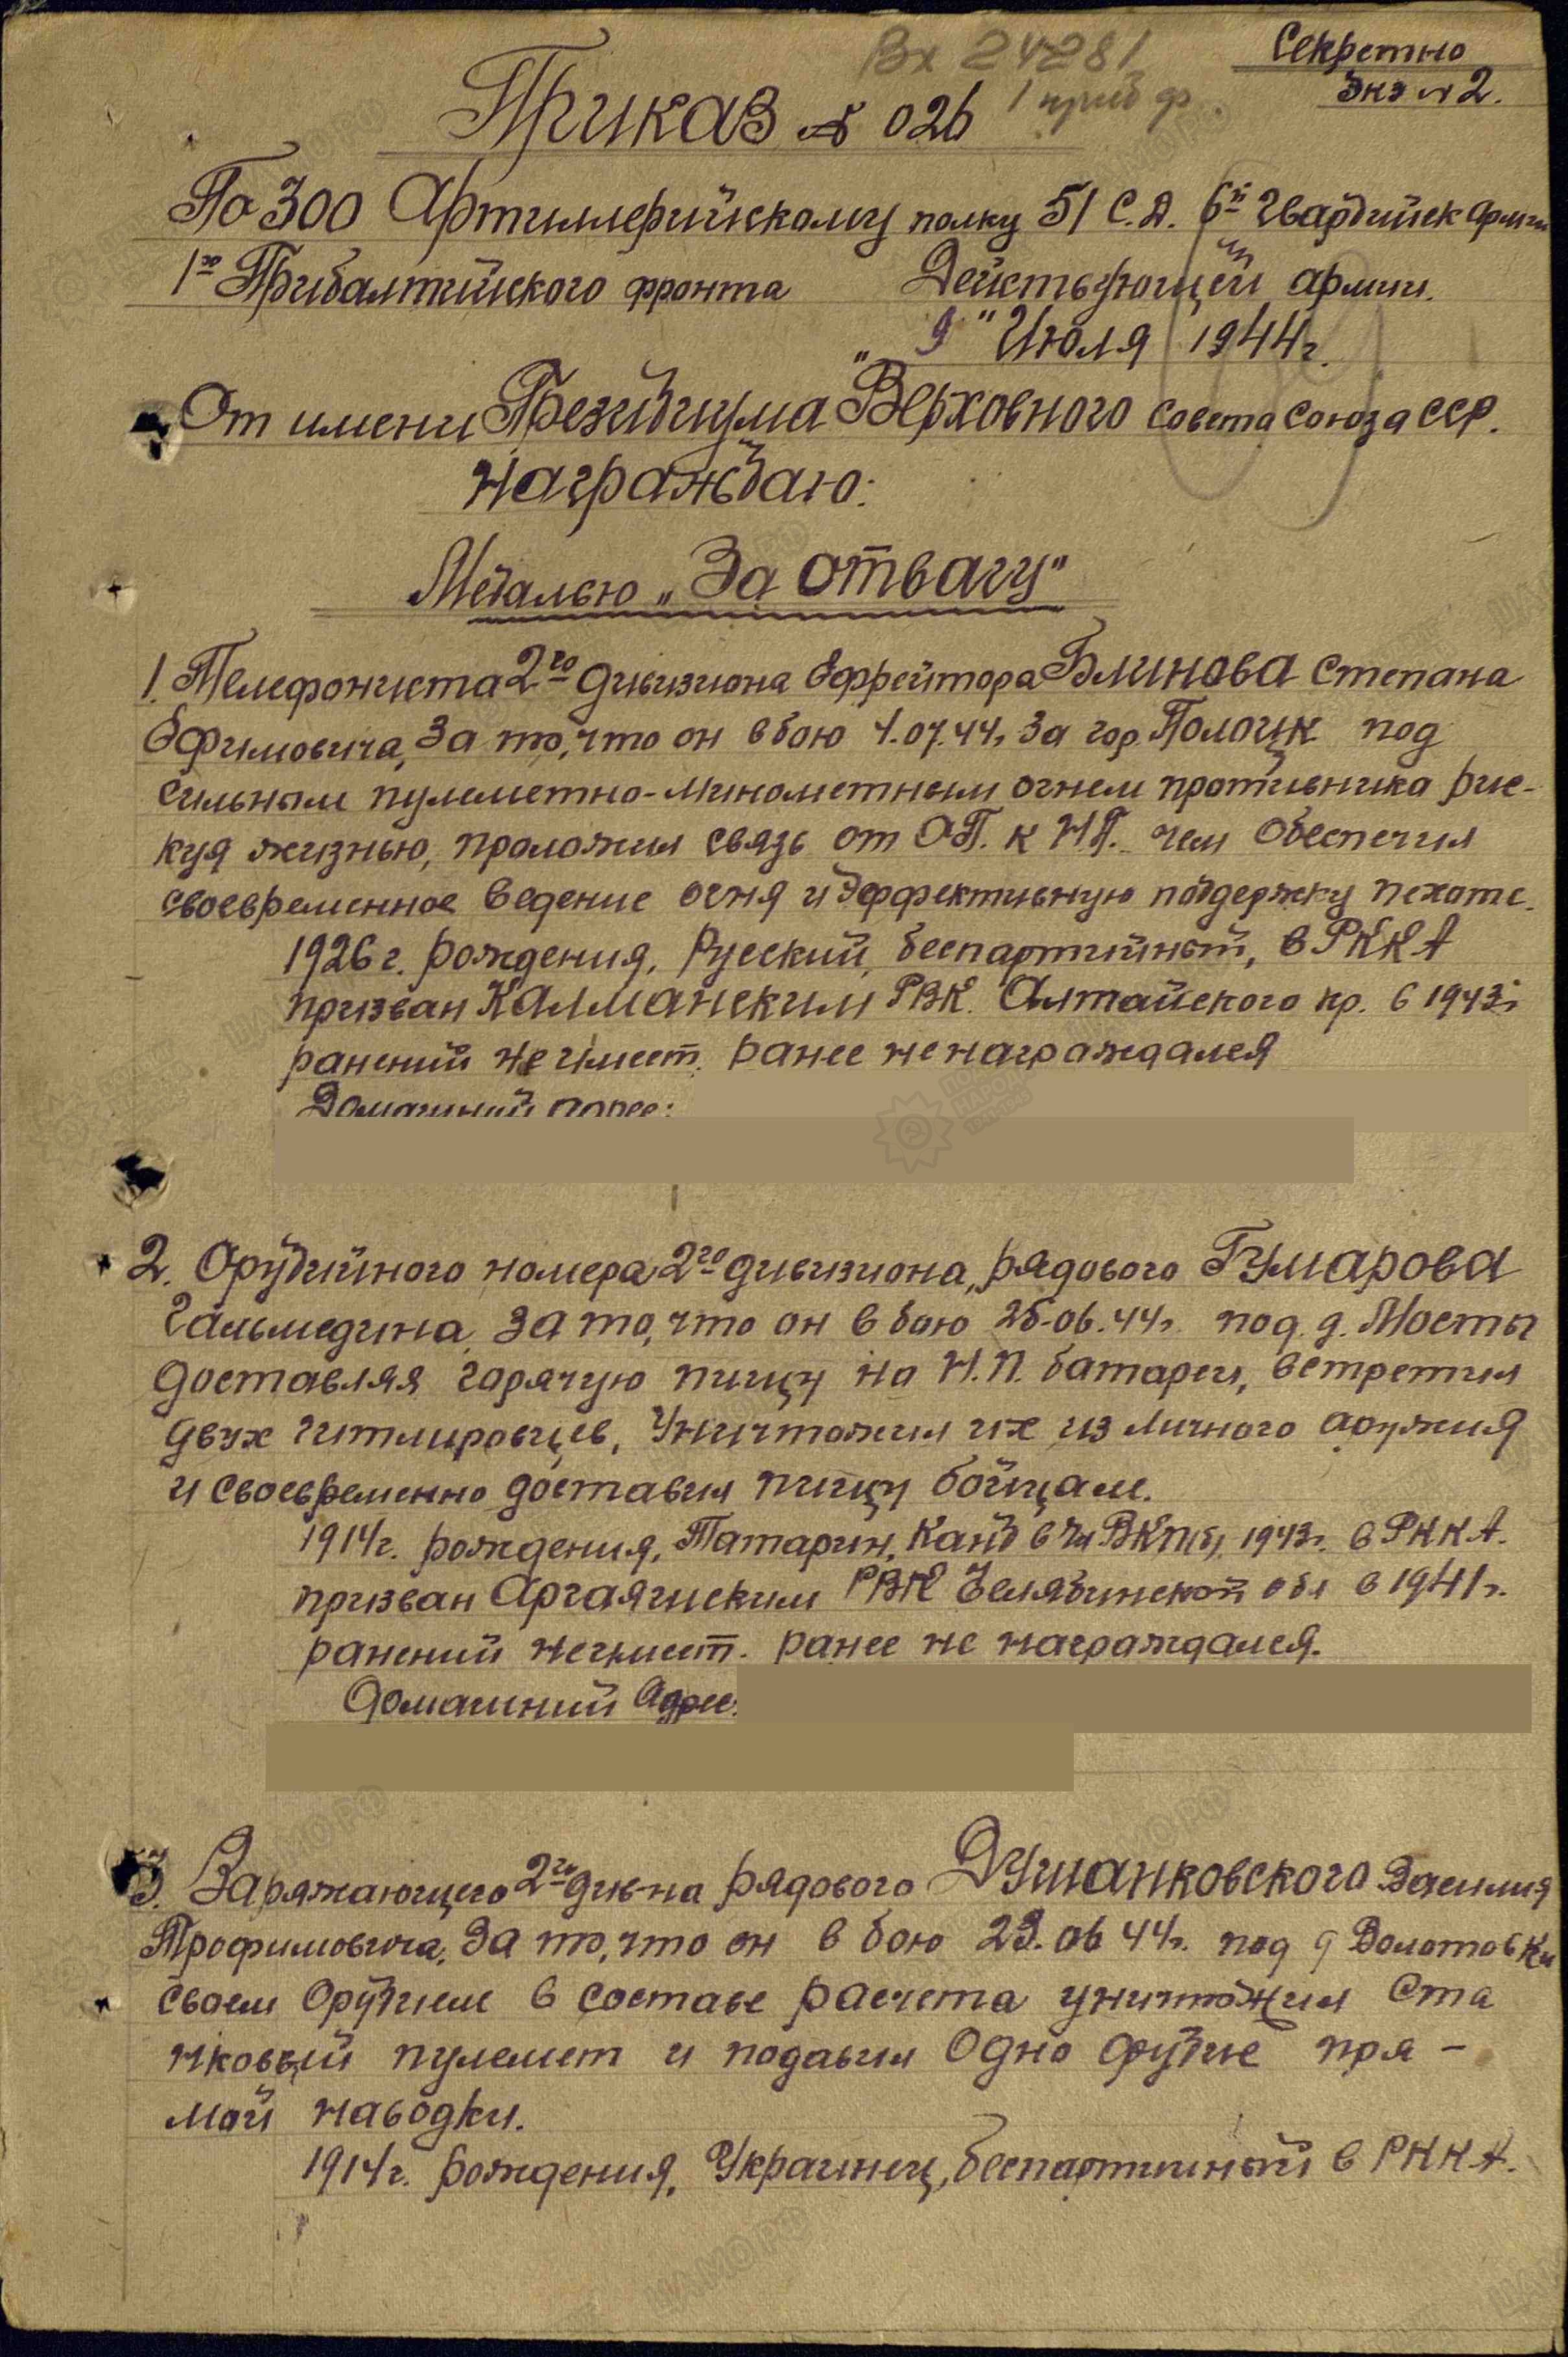 Вх 24281
1 приб ф.
Секретно
Экз № 2.
Приказ № 026
По 300 Артиллерийскому полку 51 С.Д. 6й Гвардийск Армии
1го Прибалтийского фронта Действующей армии.
"9" Июля 1944г.
От имени Президиума Верховного Совета Союза ССР.
Награждаю:
Медалью „За отвагу"
1. Телефониста 2го дивизиона Ефрейтора Блинова Степана
Ефимовича, за то, что он в бою 4.07.44г за гор. Полоцк под
сильным пулеметно-минометным огнем противника рис-
куя жизнью, проложил связь от ОП. к НП. чем обеспечил
своевременное ведение огня и эффективную поддержку пехоте.
1926г. рождения, Русский, беспартийный, в РККА
призван Калманским РВК. Алтайского кр. в 1943г
ранений не имеет. ранее не награждался
Домашний адрес:
2. Орудийного номера 2го дивизиона, рядового Гумарова
Гальмедина, за то, что он в бою 25.06.44г. под д. Мосты
доставляя горячую пищу на Н.П. батареи, встретил
двух гитлировцев, Уничтожил их из личного аружия
и своевременно доставил пищу бойцам.
1914г. рождения, Татарин, Канд в чл ВКП(б) 1943г. в РККА.
призван Аргаяшским РВК Челябинской обл в 1941г.
ранений не имеет. ранее не награждался.
Домашний Адрес:
3. Заряжающего 2го див-на рядового Душанковского Василия
Трофимовича, за то, что он в бою 23.06 44г. под д Волотовки
своем Орудием в составе расчета уничтожил Ста
нковый пулемет и подавил Одно орудие пря-
мой наводки.
1914г. рождения, Украинец, беспартийный в РККА.